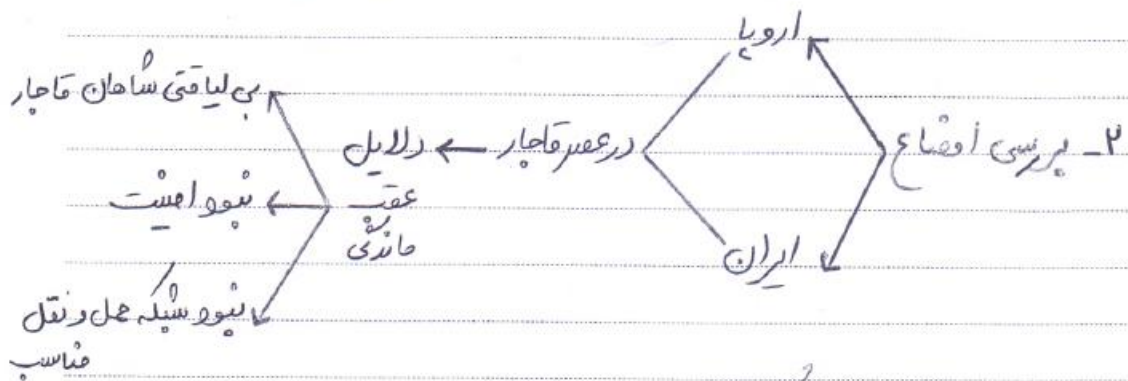 ۲- بررسی اوضاع
اروپا
ایران
در عصر قاجار
دلایل
عقب
ماندگی
بی لیاقتی شاهان قاجار
نبود امنیت
نبود شبکه حمل و نقل
مناسب